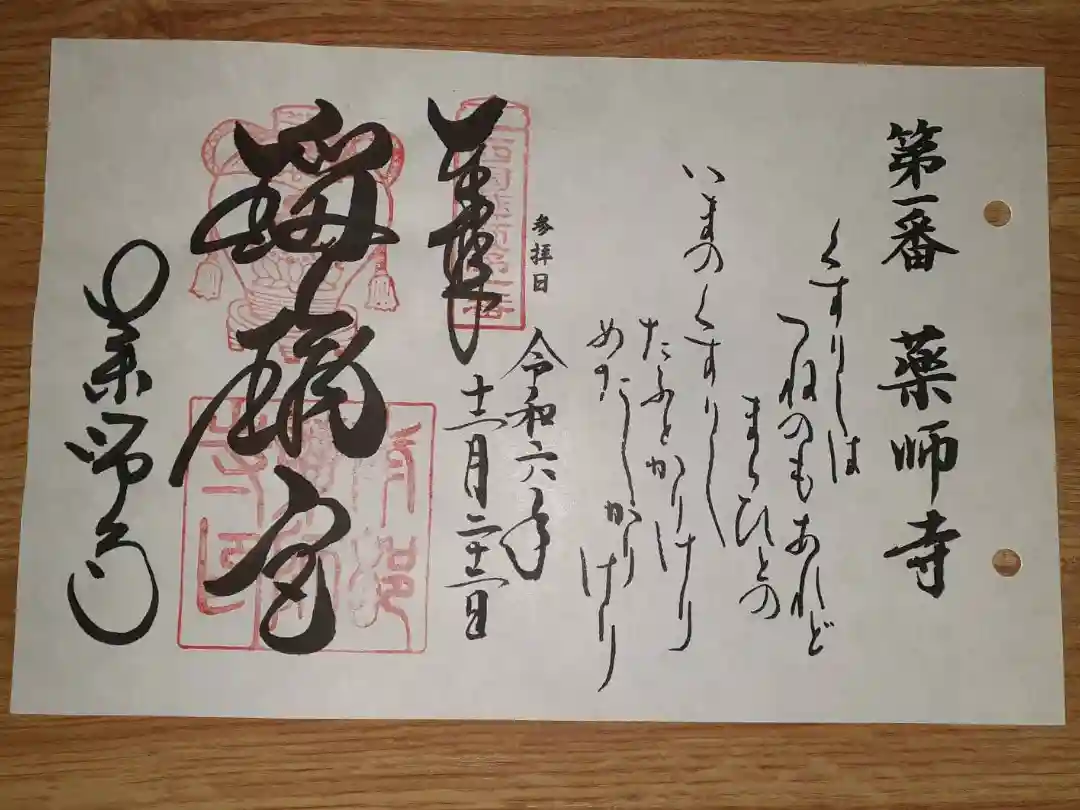 第一番 薬師寺
くすりしは
つねのもあれど
まらひとの
いまのくすりし
たふとかりけり
めだしかりけり
参拝日
令和六年
十二月二十二日
奉拝
瑠璃宮
薬師寺